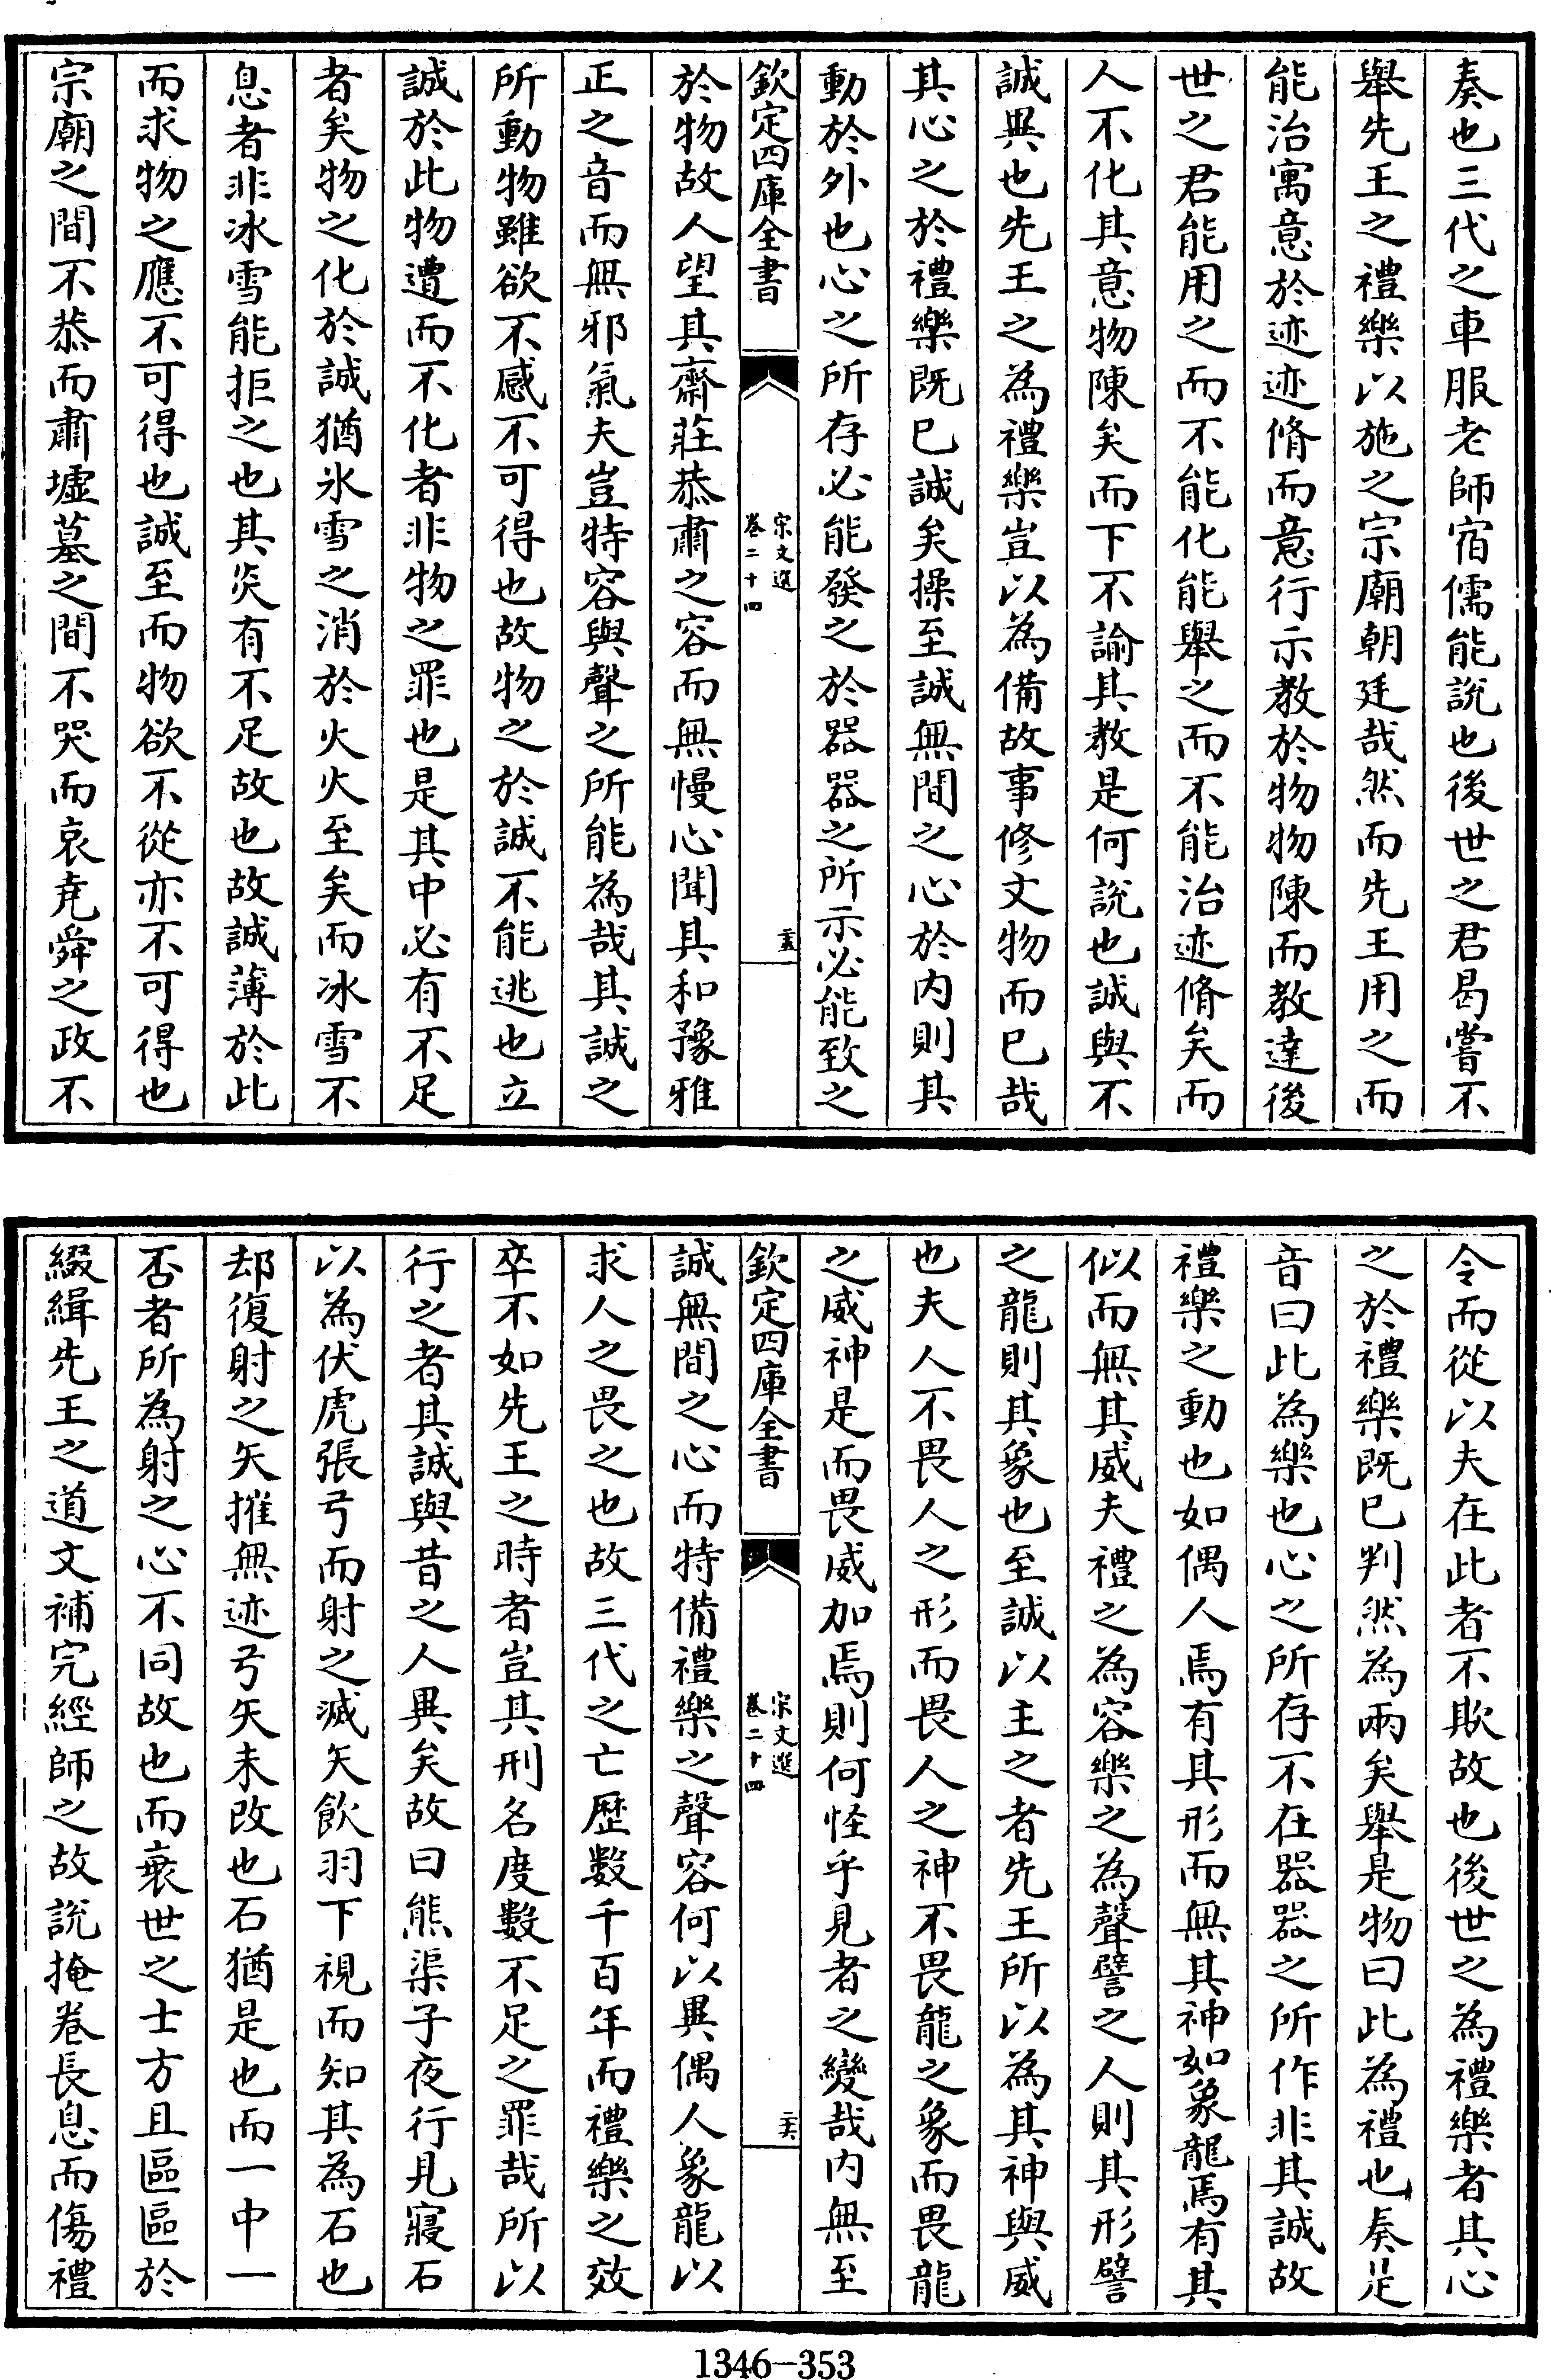 奏也三代之車服老師宿儒能說也後世之君曷嘗不
舉先王之禮樂以施之宗廟朝廷哉然而先王用之而
能治寓意於迹迹脩而意行示教於物物陳而教達後
世之君能用之而不能化能舉之而不能治迹脩矣而
人不化其意物陳矣而下不諭其教是何說也誠與不
誠異也先王之為禮樂豈以為備故事修文物而已哉
其心之於禮樂既已誠矣操至誠無間之心於内則其
動於外也心之所存必能發之於器器之所示必能致之
欽定四庫全書
宋文選
卷二十四
二十五
於物故人望其齋莊恭肅之容而無慢心聞其和豫雅
正之音而無邪氣夫豈特容與聲之所能為哉其誠之
所動物雖欲不感不可得也故物之於誠不能逃也立
誠於此物遭而不化者非物之罪也是其中必有不足
者矣物之化於誠猶氷雪之消於火火至矣而冰雪不
息者非冰雪能拒之也其炎有不足故也故誠薄於此
而求物之應不可得也誠至而物欲不從亦不可得也
宗廟之間不恭而肅墟墓之間不哭而哀堯舜之政不
令而從以夫在此者不欺故也後世之為禮樂者其心
之於禮樂既已判然為兩矣舉是物曰此為禮也奏是
音曰此為樂也心之所存不在器器之所作非其誠故
禮樂之動也如偶人焉有其形而無其神如象龍焉有其
似而無其威夫禮之為容樂之為聲譬之人則其形譬
之龍則其象也至誠以主之者先王所以為其神與威
也夫人不畏人之形而畏人之神不畏龍之象而畏龍
之威神是而畏威加焉則何怪乎見者之變哉内無至
欽定四庫全書
宋文選
卷二十四
二十六
誠無間之心而特備禮樂之聲容何以異偶人象龍以
求人之畏之也故三代之亡歷數千百年而禮樂之效
卒不如先王之時者豈其刑名度數不足之罪哉所以
行之者其誠與昔之人異矣故曰熊渠子夜行見寢石
以為伏虎張弓而射之滅矢飲羽下視而知其為石也
却復射之矢摧無迹弓矢未改也石猶是也而一中一
否者所為射之心不同故也而衰世之士方且區區於
綴緝先王之道文補完經師之故説掩卷長息而傷禮
1346-353